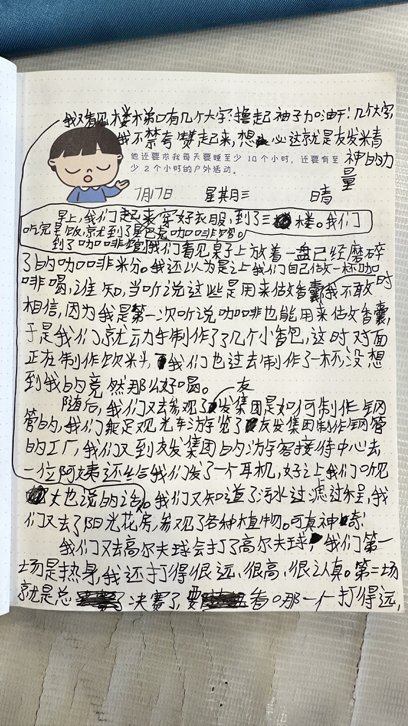 我又看见楼梯前口有几个大字:撸起袖子加油干!几个大字
我不禁夸赞起来,想必这就是友发精
神的力
量
他还要求我每天要睡至少 10 个小时,还要有至
少 2 个小时的户外活动。
7月17日 星其月三 晴
早上,我们起来穿好衣服,到了三楼。我们
吃完早饭,就到了星巴克咖啡馆。
到了咖啡馆我们看见桌子上放着一盘已经磨碎
了的咖啡米分。我还以为是让我们自己做一杯咖
啡喝,谁知,当听说这些是用来做香囊我不敢
相信,因为我是第一次听说咖啡也能用来做香囊,
于是我们就动手制作了几个小香包,这时对面
正在制作饮料,我们也过去制作了一杯没想
到我的竟然那么好喝。
随后,我们又去参观了友发集团是如何制作钢
管的,我们能足观光车游览了友发集团制作钢管
的工厂,我们又到友发集团的游客接待中心去,
一位阿姨还给我们发了一个耳机,好让我们听见
她说的话。我们又知道了污水过滤过程,我
们又去了阳光花房,参观了各种植物。可真神奇!
我们又去高尔夫球会打了高尔夫球,我们第一
场是热身,我还打得很远,很高,很认真。第二场
就是总决赛了,要看哪一个打得远,